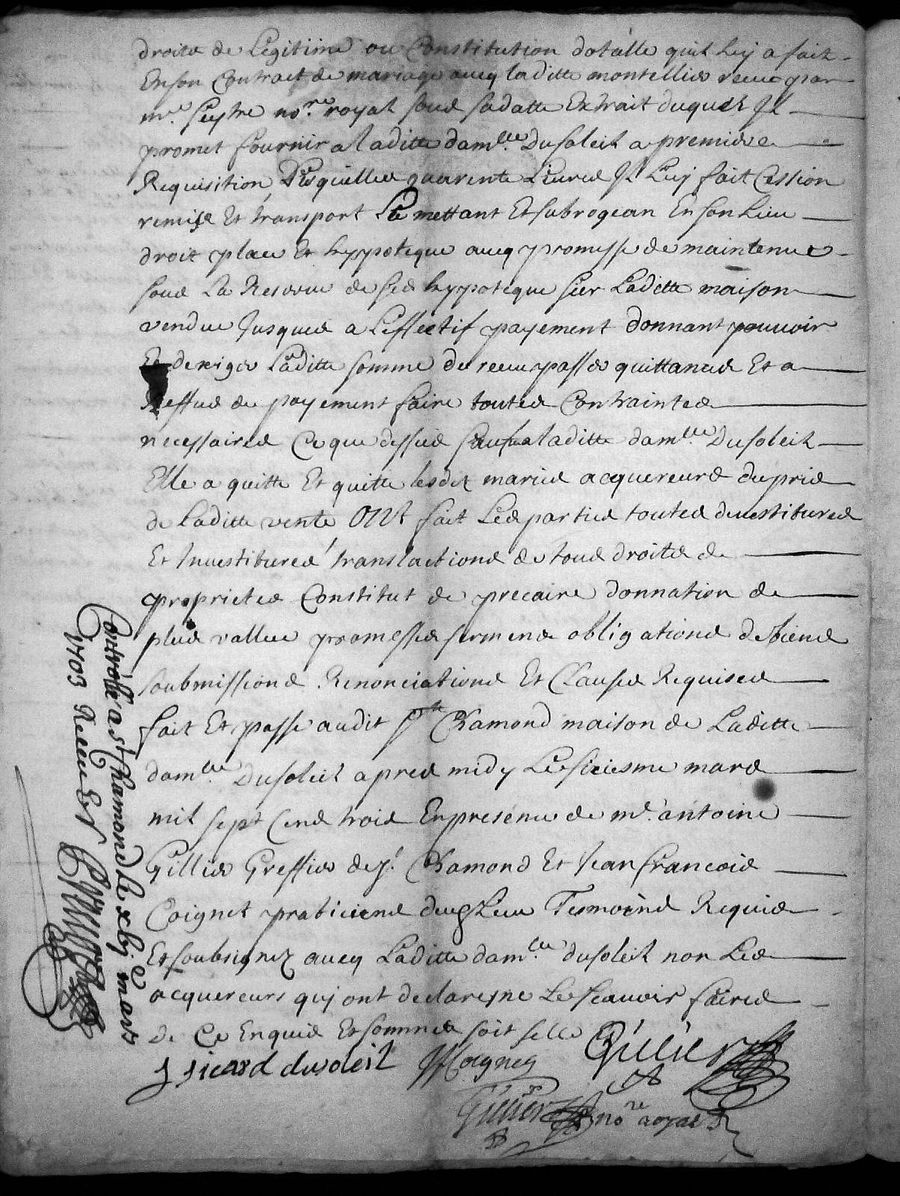 droits de Legitime ou Constitution dotalle quil luy a fait
En son Contract de mariage avecq laditte montellier receu par
me. Peyre nore royal sous sa datte Extrait duquel Il
promet fournir a laditte damlle. Dusoleil a premiere
Requisition, Desquelles quarente Livres Il Luy fait Cession
remise Et transport La mettant Et subrogean En son Lieu
droit place Et hyppoteque avecq promesse de maintenue
sous La Reserve de ses hyppoteque sur Laditte maison
vendue Jusques a Leffectif payement donnant pouvoir
dexiger Laditte somme den passer quittances Et a
Reffus de payement faire touttes Contraintes
necessaires Ce que dessus laditte damlle Dusoleil
Elle a quitte Et quitte lesdit maries acquereurs du prix
de Laditte vente Ont fait Les parties touttes devestitures
Et Investitures translactions de tous droits de
proprietes Constitut de precaire donnation de
plus vallue promesses sermens obligations de biens
soubmissions Renonciations Et Clauses Requises
fait Et passe audit St Chamond maison de Laditte
damlle Dusoleil apres midy Le sixiesme mars
mil sept Cens trois En presence de me. antoine
Gillier Greffier de St. Chamond Et Jean francois
Coignet praticiens dudt Lieu Tesmoins Requis
Et soubsignez avecq Laditte damlle dusoleil non Les
acquereurs qui ont declares ne Le scavoir faire
de Ce Enquis Et sommes soit selle
J sicard dusoleil Coignet Gillier
Gillier nore royal
Controlle a St Chamond le xbj e mars
1703 Receu